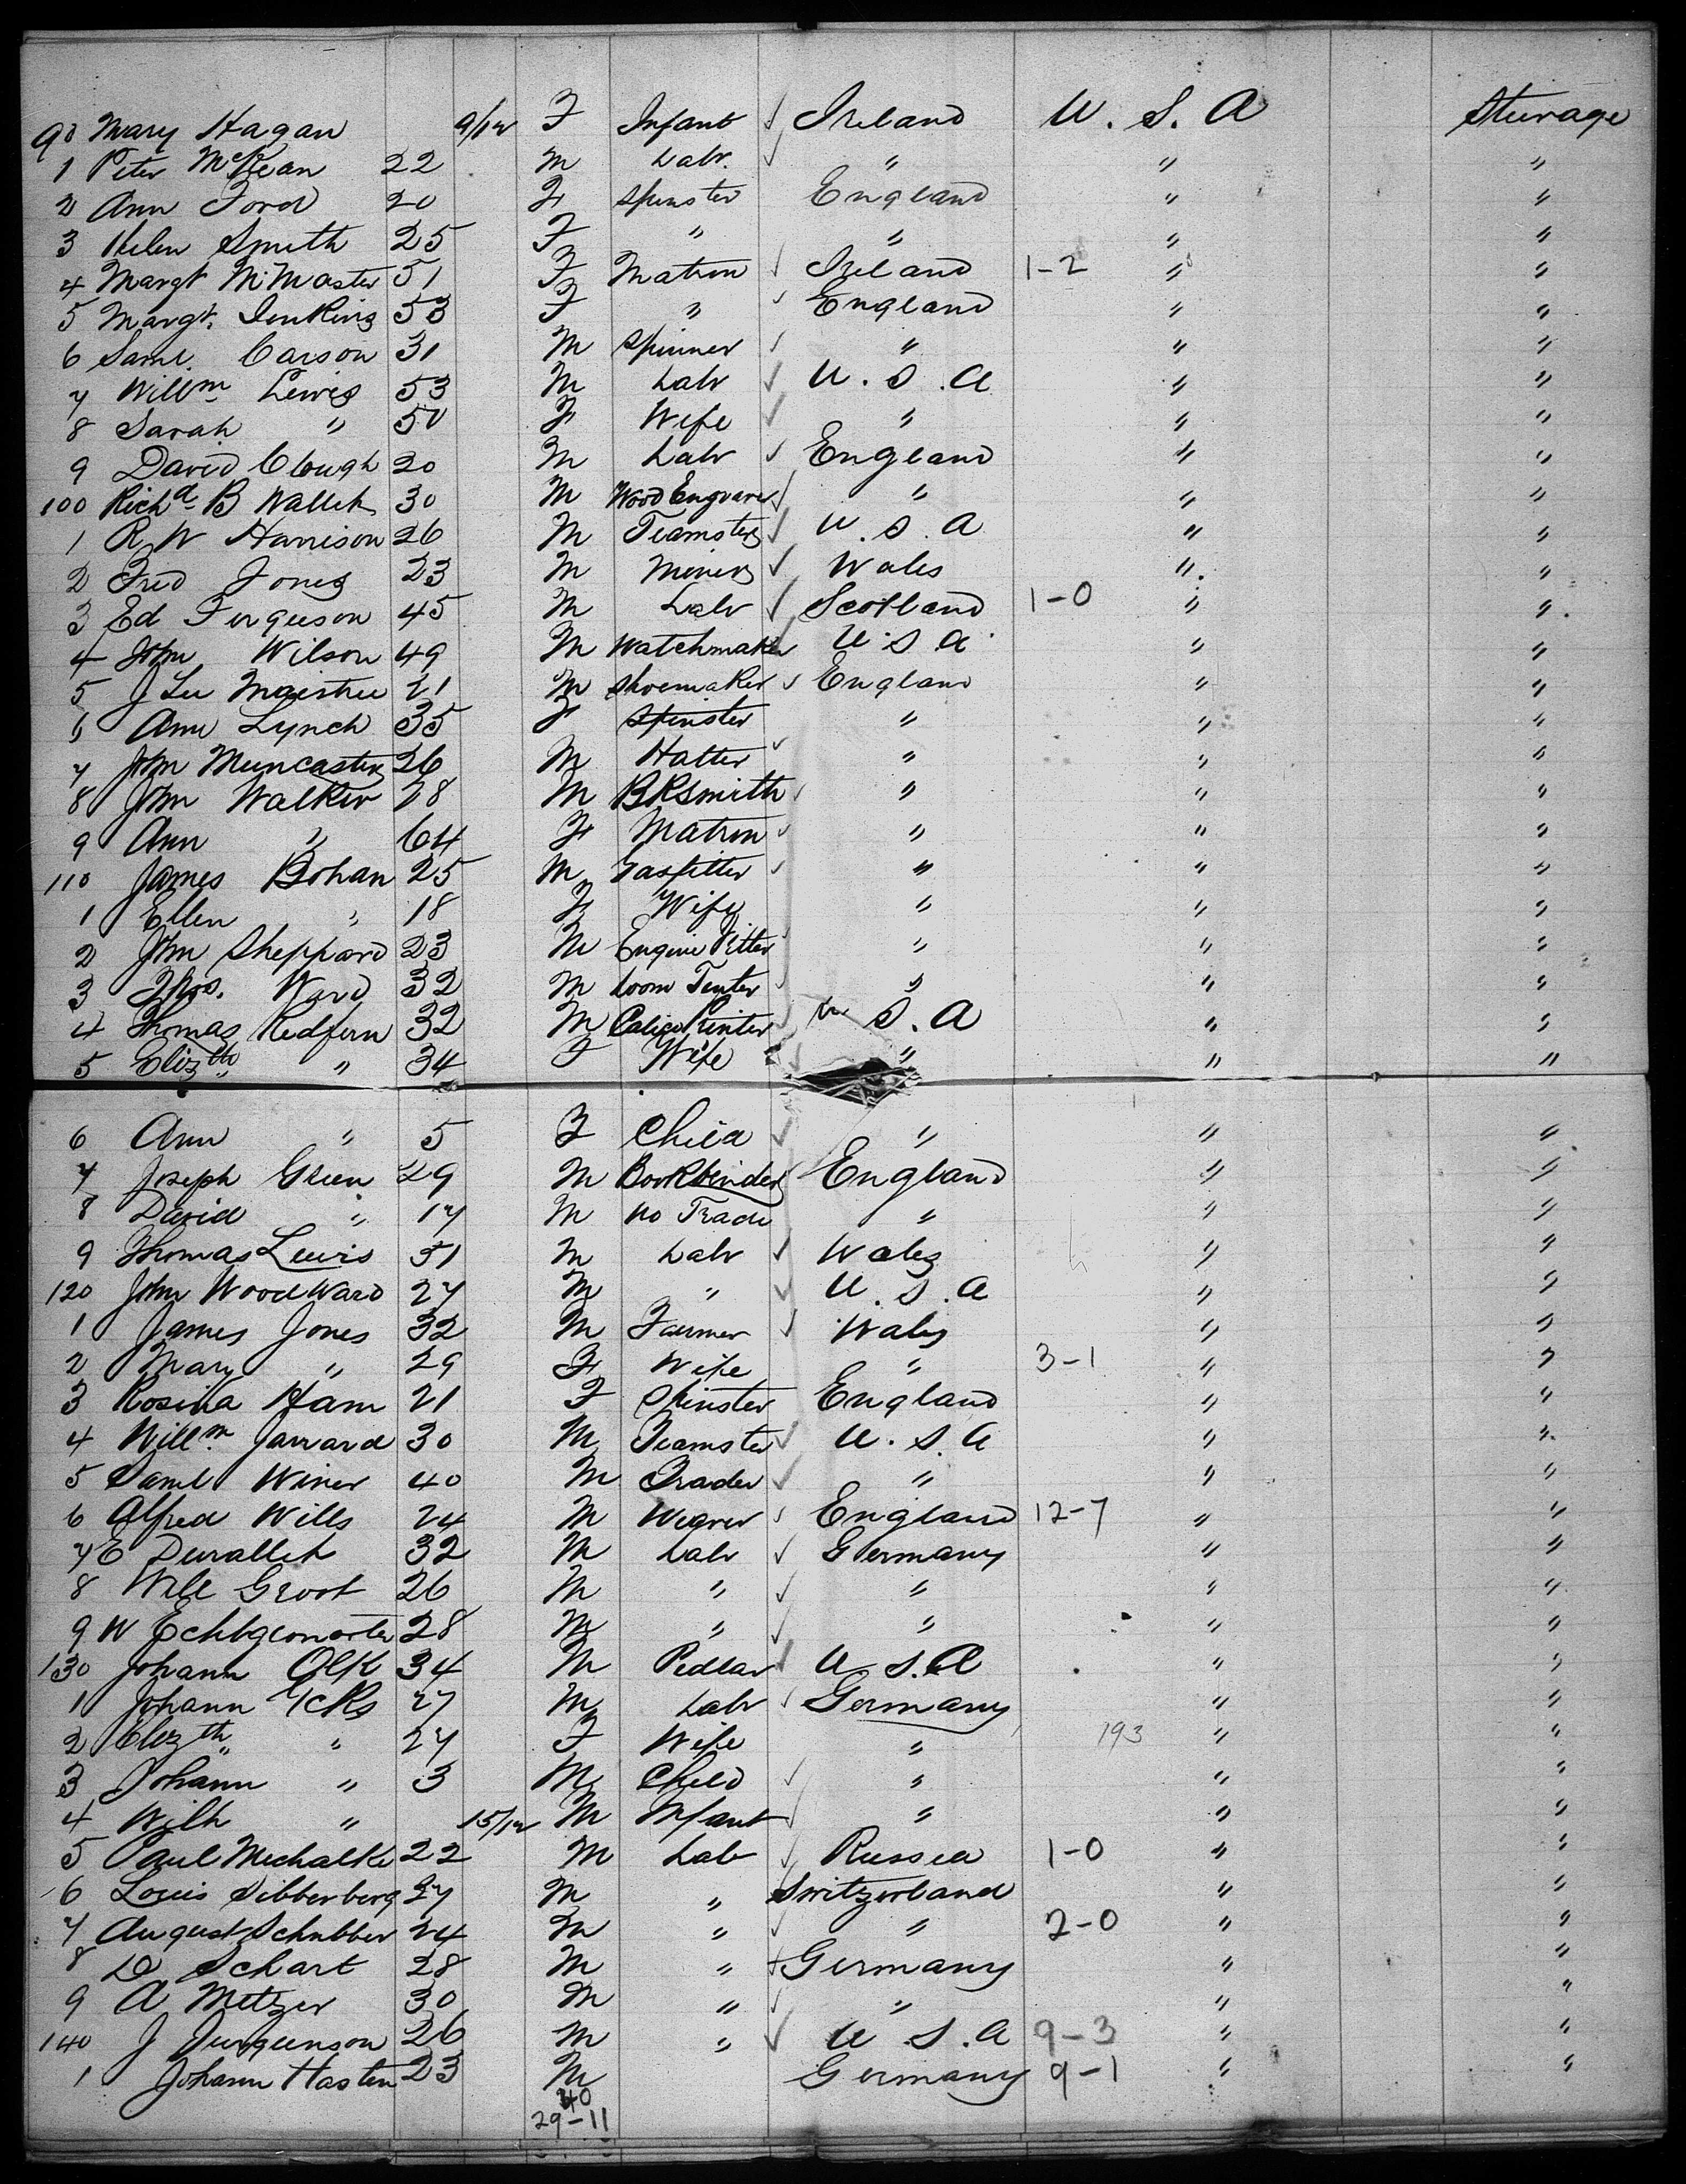 90 Mary Hagan 9/12 F Infant ✓ Ireland U. S. A Steerage
1 Peter McKean 22 M Labr. ✓ " " "
2 Ann Ford 20 F Spinster England " "
3 Helen Smith 25 F " " " "
4 Margt McMaster 51 F Matron ✓ Ireland 1-2 " "
5 Margt. Jenkins 53 F " ✓ England " "
6 Saml. Carson 31 M Spinner ✓ " " "
7 Willm Lewis 53 M Labr ✓ U. S. A " "
8 Sarah " 50 F Wife ✓ " " "
9 David Clough 20 M Labr ✓ England " "
100 Richd B Wallek 30 M Wood Engraver ✓ " " "
1 R W Harrison 26 M Teamster ✓ U. S. A " "
2 Fred Jones 23 M Miner ✓ Wales " "
3 Ed Ferguson 45 M Labr ✓ Scotland 1-0 " "
4 John Wilson 49 M Watchmaker ✓ U S A " "
5 J Lee Maistree 21 M Shoemaker ✓ England " "
6 Ann Lynch 35 F Spinster " " "
7 John Muncaster 26 M Hatter ✓ " " "
8 John Walker 28 M BKSmith ✓ " " "
9 Ann " 64 F Matron ✓ " " "
110 James Bohan 25 M Gasfitter ✓ " " "
1 Ellen " 18 F Wife " " "
2 John Sheppard 23 M Engine Fitter ✓ " " "
3 Thos. Ward 32 M Loom Tenter ✓ " " "
4 Thomas Redfern 32 M Calico Printer ✓ U S. A " "
5 Elizth " 34 F Wife ✓ " " "
6 Ann " 5 F Child ✓ " " "
7 Joseph Green 29 M Bookbinder ✓ England " "
8 David " 17 M No Trade " " "
9 Thomas Lewis 31 M Labr ✓ Wales " "
120 John Woodward 27 M " ✓ U. S. A " "
1 James Jones 32 M Farmer ✓ Wales " "
2 Mary " 29 F Wife " 3-1 " "
3 Rosina Ham 21 F Spinster England " "
4 Willm Jarrard 30 M Teamster ✓ U. S. A " "
5 Saml Winer 40 M Trader ✓ " " "
6 Alfred Wills 24 M Weaver ✓ England 12-7 " "
7 E Durallek 32 M Labr ✓ Germany " "
8 Will Groot 26 M " ✓ " " "
9 W 28 M " ✓ " " "
130 Johann Olk 34 M Pedlar ✓ U S. A " "
1 Johann Ycks 27 M Labr ✓ Germany " "
2 Elizth " 27 F Wife " 193 " "
3 Johann " 3 M Child ✓ " " "
4 Wilh " 15/12 M Infant ✓ " " "
5 Paul Mechalke 22 M Lab ✓ Russia 1-0 " "
6 Louis Sibberberg 27 M " Switzerland " "
7 August Schubber 24 M " ✓ " 2-0 " "
8 D Schart 28 M " ✓ Germany " "
9 A Metzer 30 M " ✓ " " "
140 J Jurgeenson 26 M " ✓ U S. A 9-3 " "
1 Johann Hasten 23 M Germany 9-1 " "
40
29-11